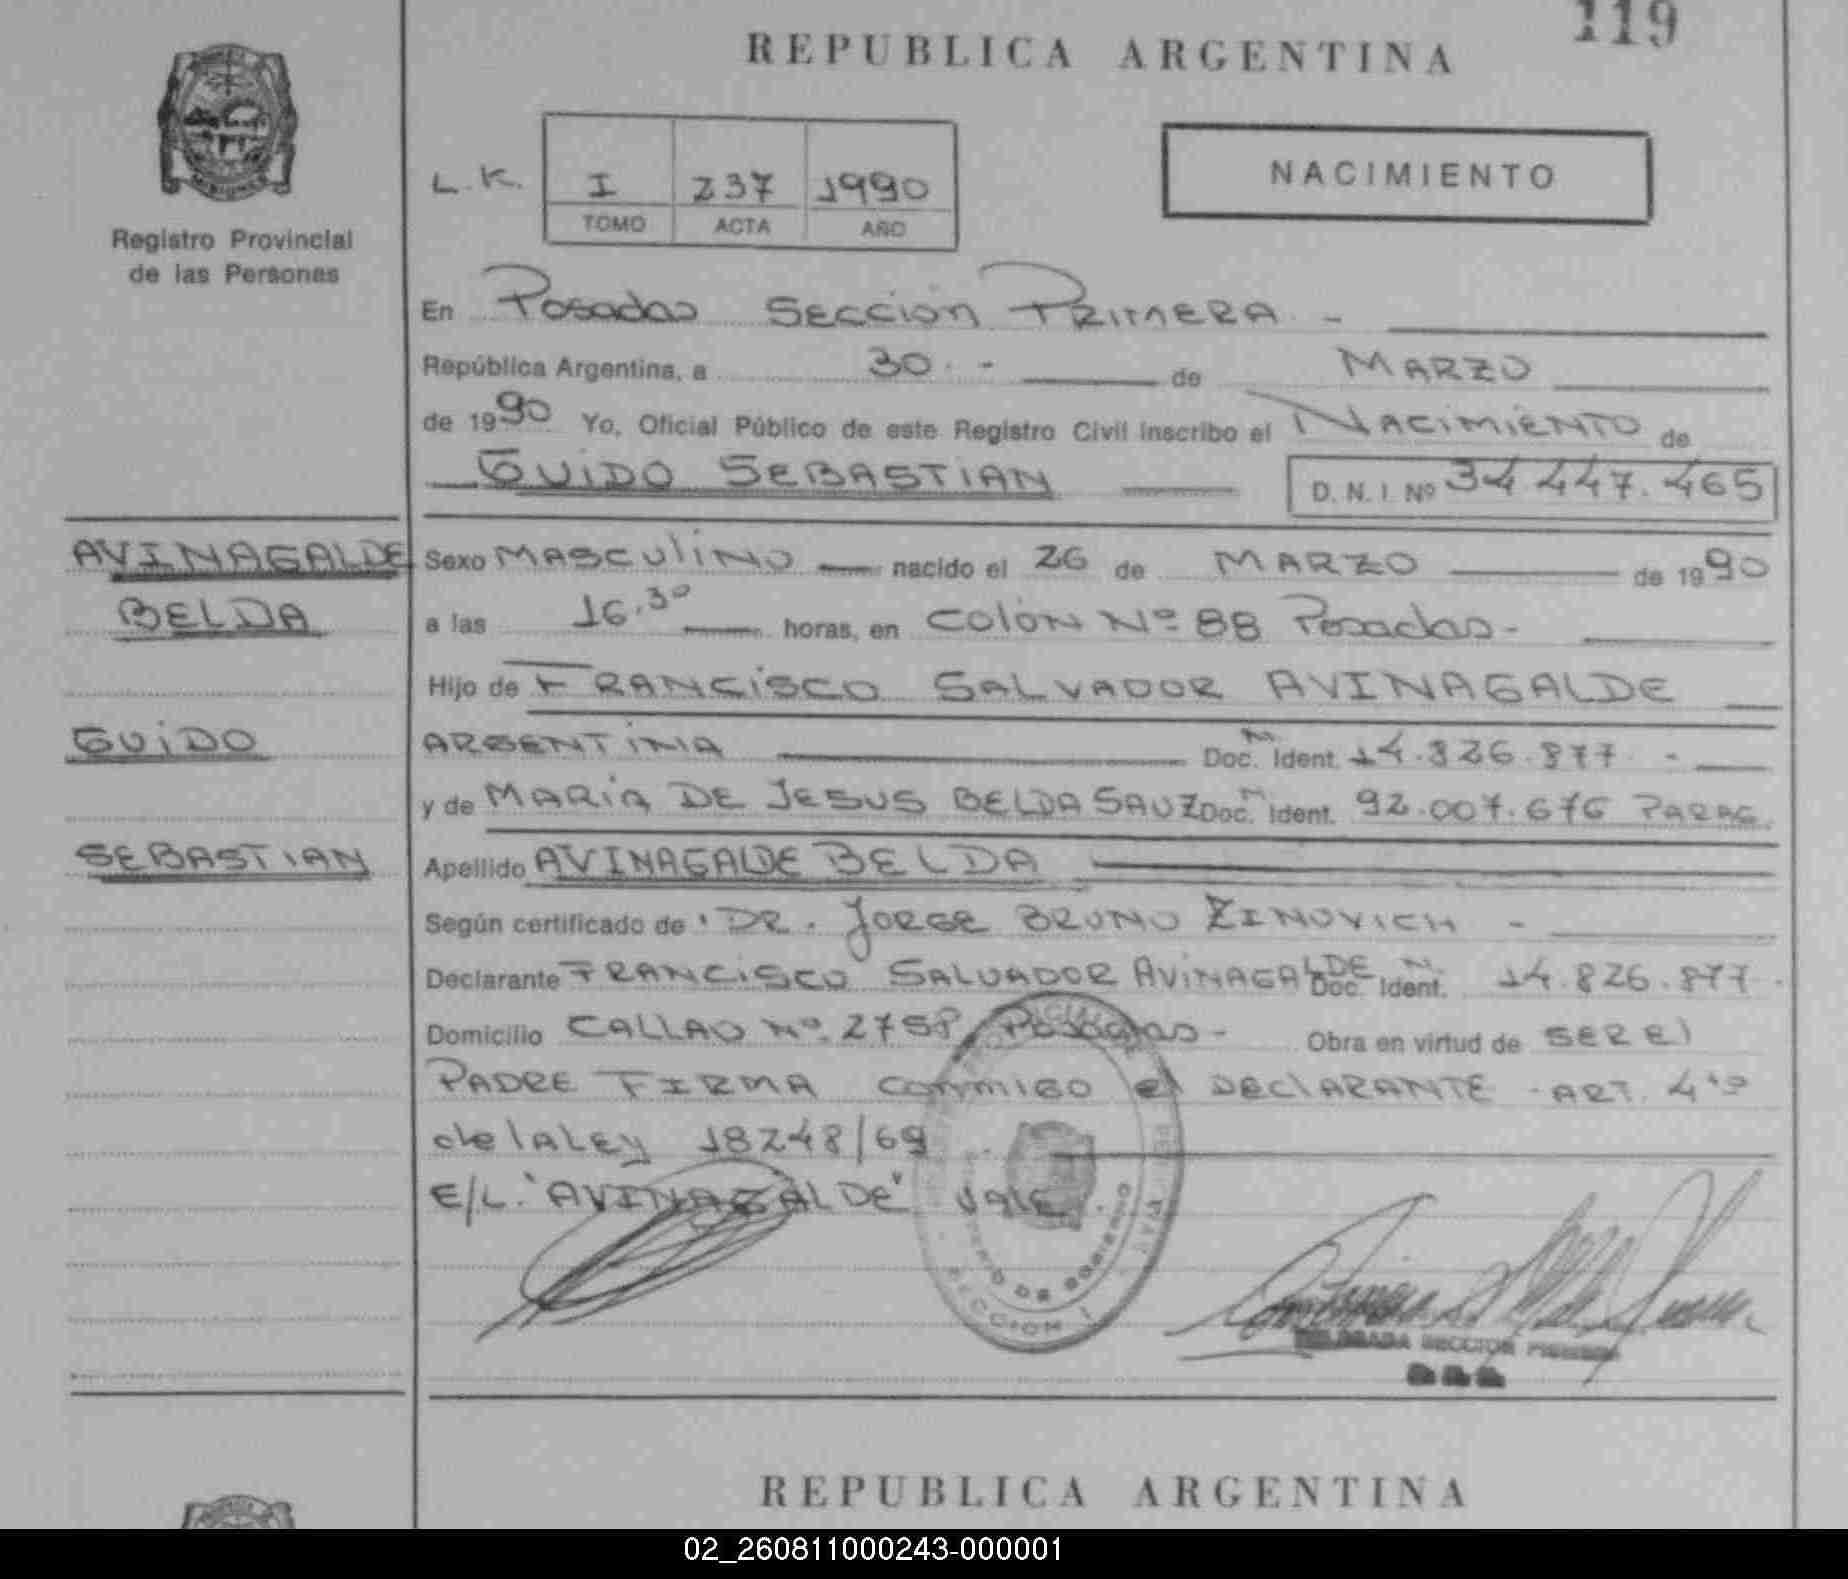 119
REPUBLICA ARGENTINA
MISIONES
Registro Provincial
de las Personas
L. K.
I 237 1990
TOMO ACTA AÑO
NACIMIENTO
En Posadas Sección Primera -
República Argentina, a 30.- de MARZO
de 1990 Yo, Oficial Público de este Registro Civil inscribo el NACIMIENTO de
GUIDO SEBASTIAN D. N. I. Nº 34.447.465
AVINAGALDE
BELDA
GUIDO
SEBASTIAN
Sexo MASCULINO nacido el 26 de MARZO de 1990
a las 16.30 horas, en Colón Nº 88 Posadas-
Hijo de FRANCISCO SALVADOR AVINAGALDE
ARGENTINA Doc. N. Ident. 14.826.877.-
y de MARÍA DE JESUS BELDA SAUZ Doc. N Ident. 92.007.676 PARAG.
Apellido AVINAGALDE BELDA
Según certificado de DR. JORGE BRUNO ZINOVICH -
Declarante FRANCISCO SALVADOR AVINAGALDE Doc. N. Ident. 14.826.877.
Domicilio CALLAO Nº 2758 Posadas- Obra en virtud de SER El
PADRE FIRMA conmigo el DECLARANTE - ART. 4to
de la Ley 18248/69.
E/L. "AVINAGALDE" Vale.
SECCION I
DE GOBIERNO
DELEGADA SECCION PRIMERA
REPUBLICA ARGENTINA
02_260811000243-000001